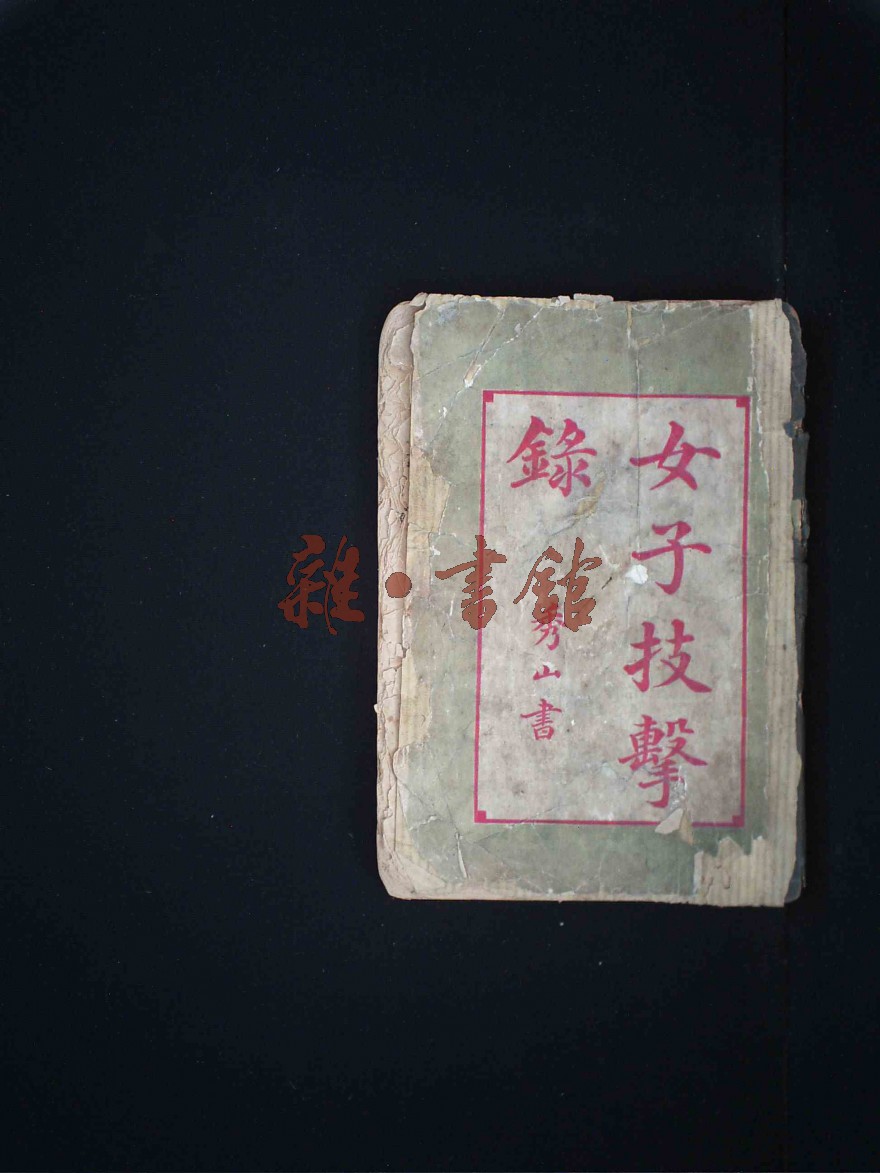 女子技擊
錄
秀山書
雜·書館